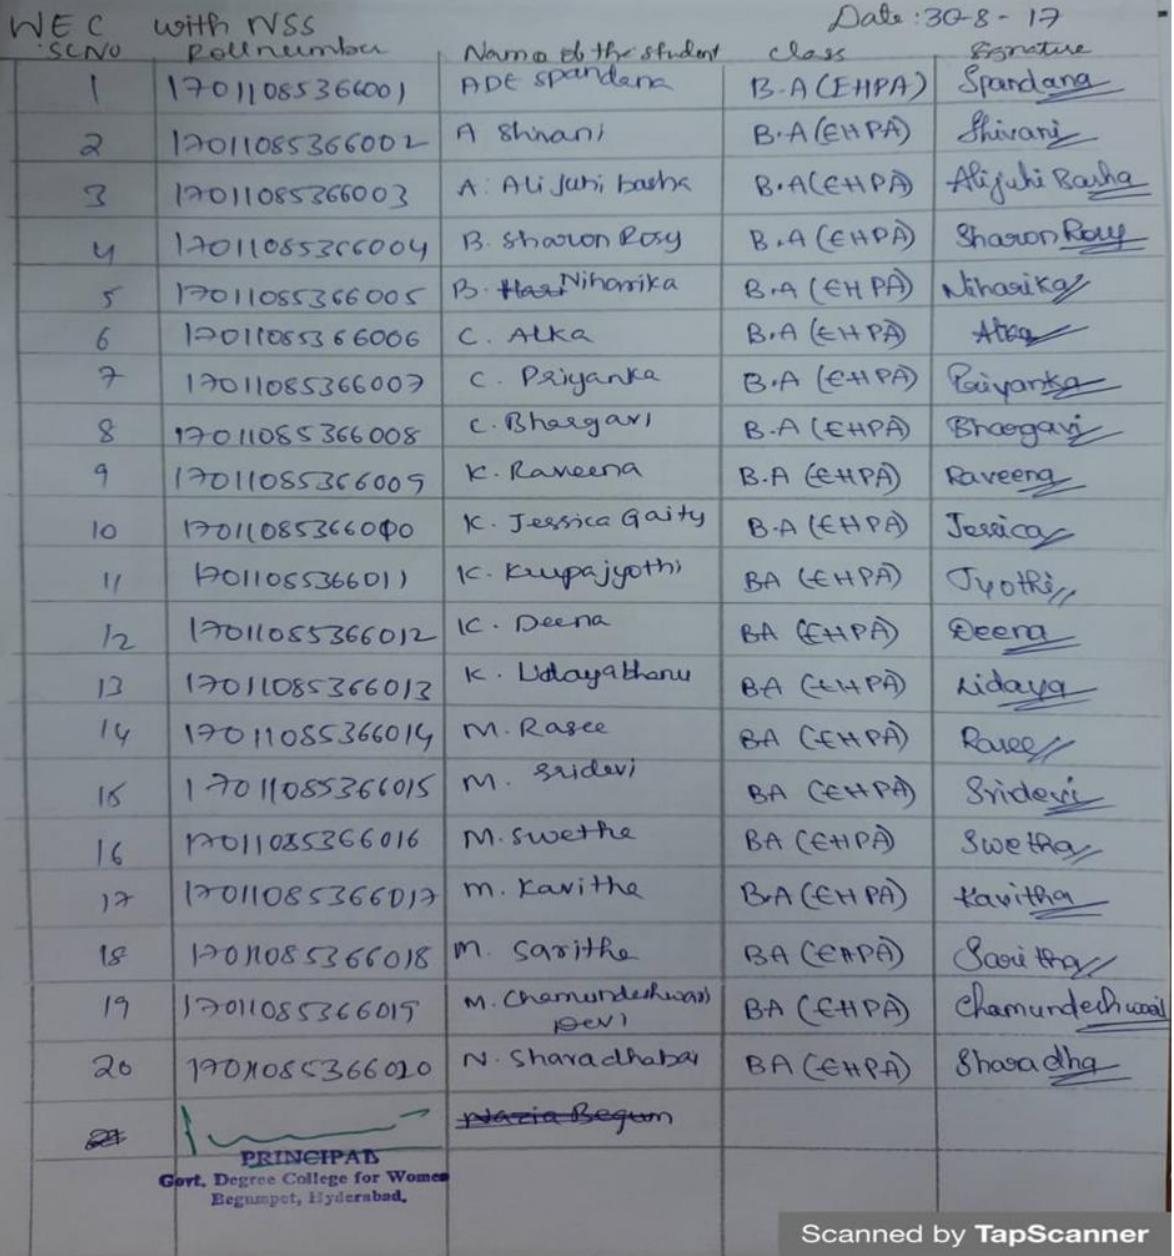 WEC with NSS Date: 30-8-17
SL.NO Roll number Name of the student class Signature
1 17011085366001 ADE Spandana B.A (EHPA) Spandana
2 17011085366002 A Shivani B.A (EHPA) Shivani
3 17011085366003 A. Ali Juhi basha B.A (EHPA) Alijuhi Basha
4 17011085366004 B. Sharon Rosy B.A (EHPA) Sharon Rosy
5 17011085366005 B. Niharika B.A (EHPA) Niharika
6 17011085366006 C. Alka B.A (EHPA) Alka
7 17011085366007 C. Priyanka B.A (EHPA) Priyanka
8 17011085366008 C. Bhargavi B.A (EHPA) Bhargavi
9 17011085366009 K. Raveena B.A (EHPA) Raveena
10 17011085366010 K. Jessica Gaity B.A (EHPA) Jessica
11 17011085366011 K. Krupajyothi BA (EHPA) Jyothi
12 17011085366012 K. Deena BA (EHPA) Deena
13 17011085366013 K. Udayabhanu BA (EHPA) Udaya
14 17011085366014 M. Rasee BA (EHPA) Rasee
15 17011085366015 M. Sridevi BA (EHPA) Sridevi
16 17011085366016 M. Swetha BA (EHPA) Swetha
17 17011085366017 M. Kavitha B.A (EHPA) Kavitha
18 17011085366018 M. Saritha BA (EHPA) Saritha
19 17011085366019 M. Chamundeshwari BA (EHPA) Chamundeshwari
Devi
20 17011085366020 N. Sharadhabai BA (EHPA) Sharadha
21 Nazia Begum
PRINCIPAL
Govt. Degree College for Women
Begumpet, Hyderabad.
Scanned by TapScanner